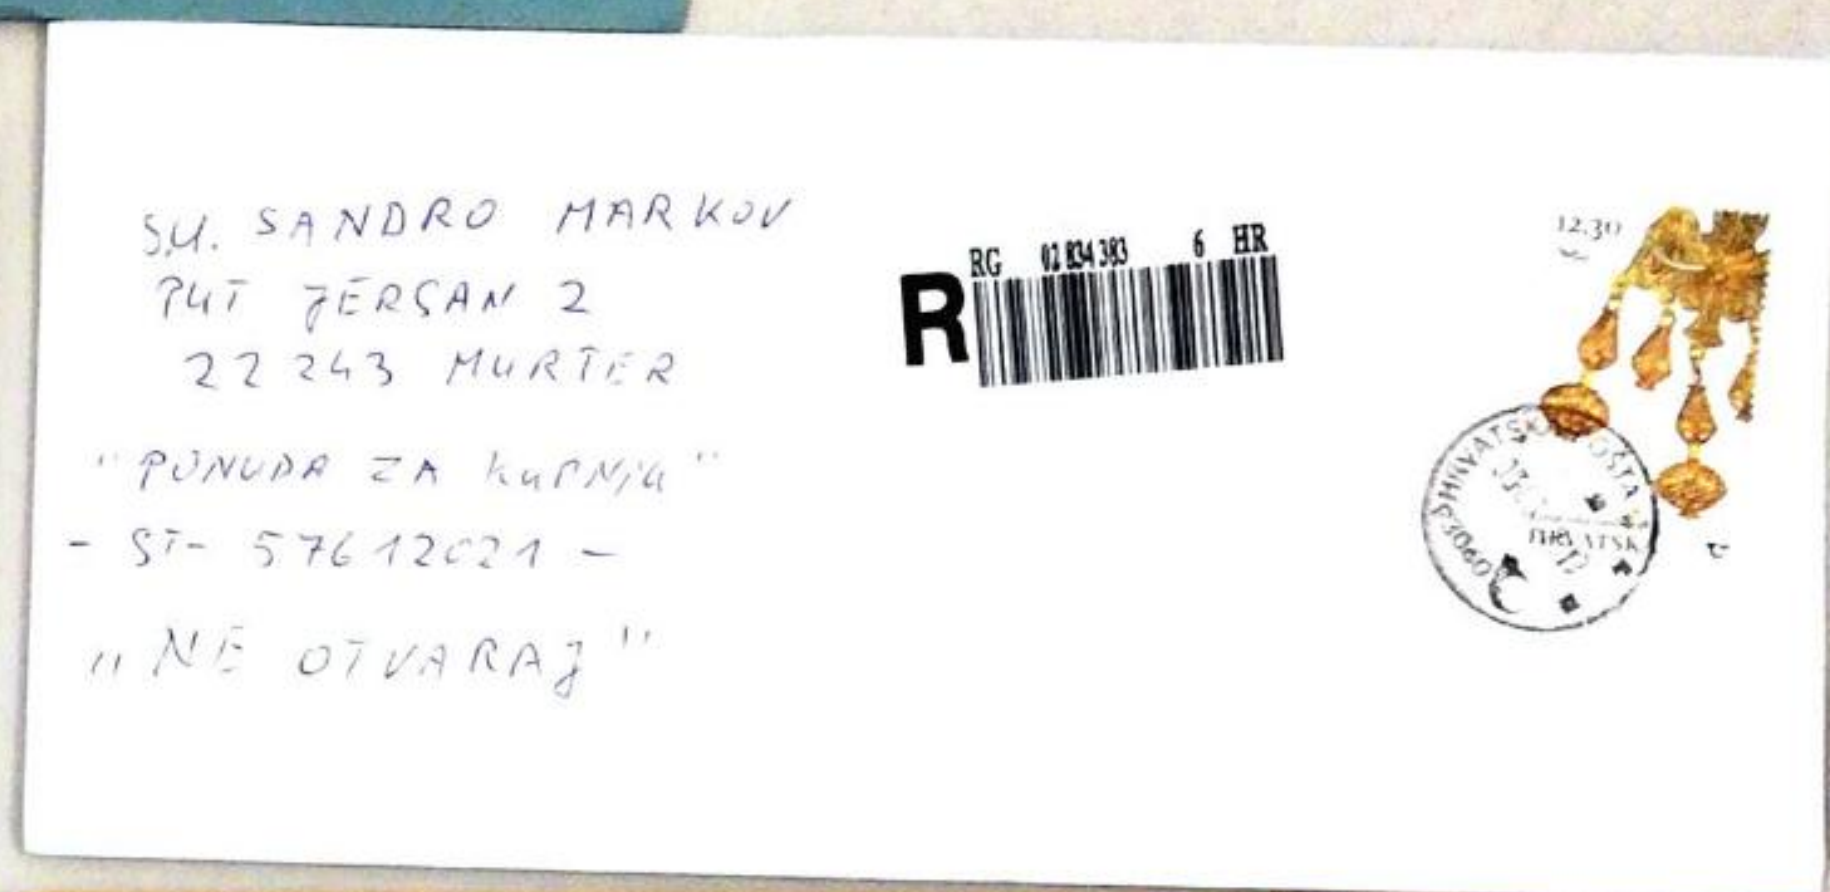 S.U. SANDRO MARKOV
PUT JERSAN 2
22 243 MURTER
"PONUDA ZA KUPNJU"
- ST- 576/2021 -
"NE OTVARAJ"
RG 02 834 383 6 HR
R
12.30
HRVATSKA POŠTA
HRVATSK